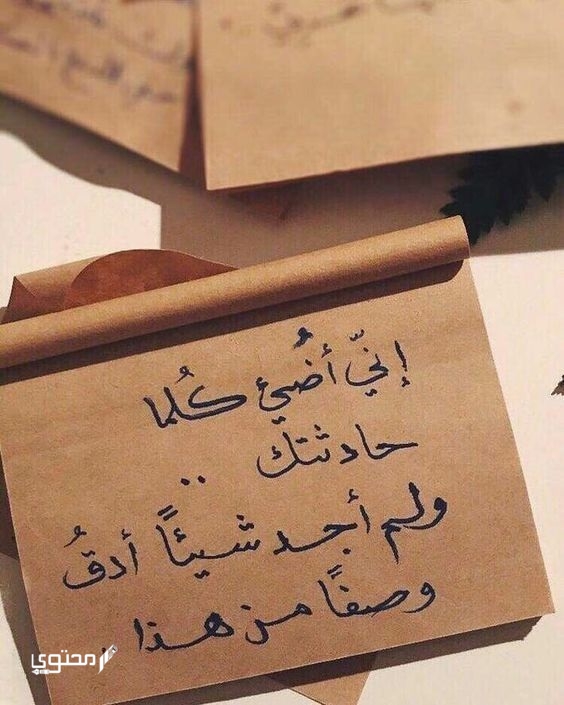 إنّي أضُيئ كُلما
حادثتك ..
ولم أجد شيئاً أدقُ
وصفاً من هذا .
محتوي